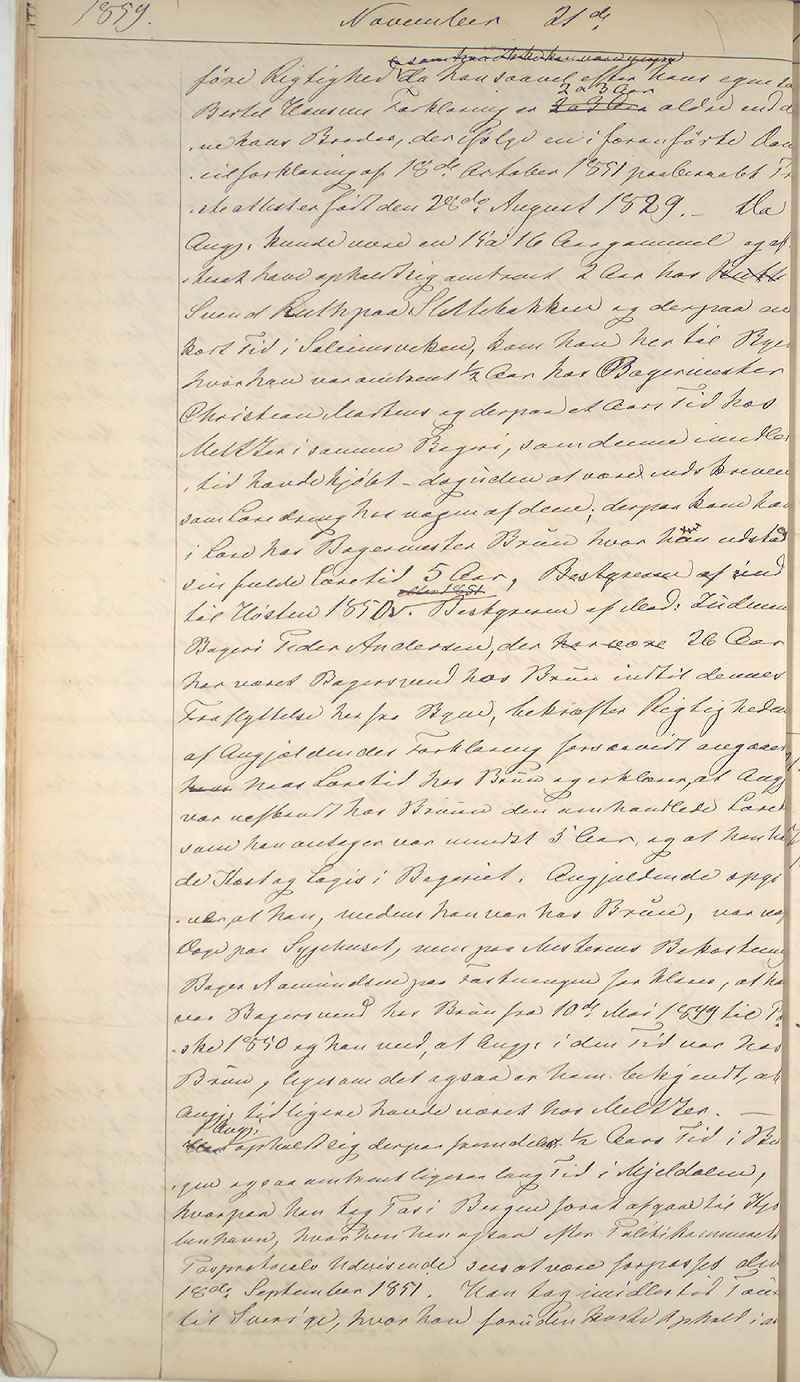 1859. November 21de
føre Rigtighed da han saavel efter hans egen
2 a 3 Aar
Bertel Hansens Forklaring er 2 a 3 Aar ældre end d
ne hans Broder, der ifølge en i foranførte
.ilforklaring af 18de October 1851 paaberaabt
ste attester født den 28de August 1829. – Da
Angj. kunde være en 15 a 16 Aar gammel og ef
terat have opholdt sig omtrent 2 Aar hos
Svend Ruth paa Slettebakken og derpaa en
kort Tid i Salieimsviken, kom han her til Bye
hvor han var omtrent 1/2 Aar hos Bagermester
Christian Martens og derpaa et Aars Tid hos
Meltzer i samme Bageri, som denne imidler
tid havde kjøbt – dog uden at være indskreven
som Læredreng hos nogen af dem; derpaa kom han
i Lære hos Bagermester Brun hvor han udstod
sin fulde Læretid 5 Aar, Bestyreren af ind
til Høsten 1850. Bestyreren af Mad:
Bageri Peder Andersen, der har være 26 Aar
har været Bagersvend hos Brun indtil dennes
Fraflyttelse her fra Byen, bekræfter Rigtigheden
af Angjældendes Forklaring forsaavidt angaaer
hans Læretid hos Brun og erklærer, at Ang
var hos Bruun den omhandlede Lære
som han antager var mindst 5 Aar, og at han ha
de Kost og Logis i Bageriet. Angjældende opgi
ver at han, medens han var hos Brun, var
Dage paa Sygehuset, men paa Mesterens Bekostning
Bager Aamundsen paa Fæstningen forklarer, at ha
var Bagersvend hos Brun fra 10de Mai 1849 til Pa
ske 1850 og han veed, at Angj. i den Tid var hos
Brun, ligesom det ogsaa er ham bekjendt, at
Angj. tidligere havde været hos Meltzer. –
Angj:
opholdt sig derpaa fremdeles 1/2 Aars Tid i Be
gen og saa omtrent ligesaa lang Tid i Mjeldalen,
hvorpaa han tog Pas i Bergen forat afgaa til Kjø
benhavn, hvorhen han ogsaa efter Politikammerets
Pasprotocols Udvisende sees at være forpasset den
18de September 1851. Han tog imidlertid
til Sverige, hvor han foruden korte Ophold i